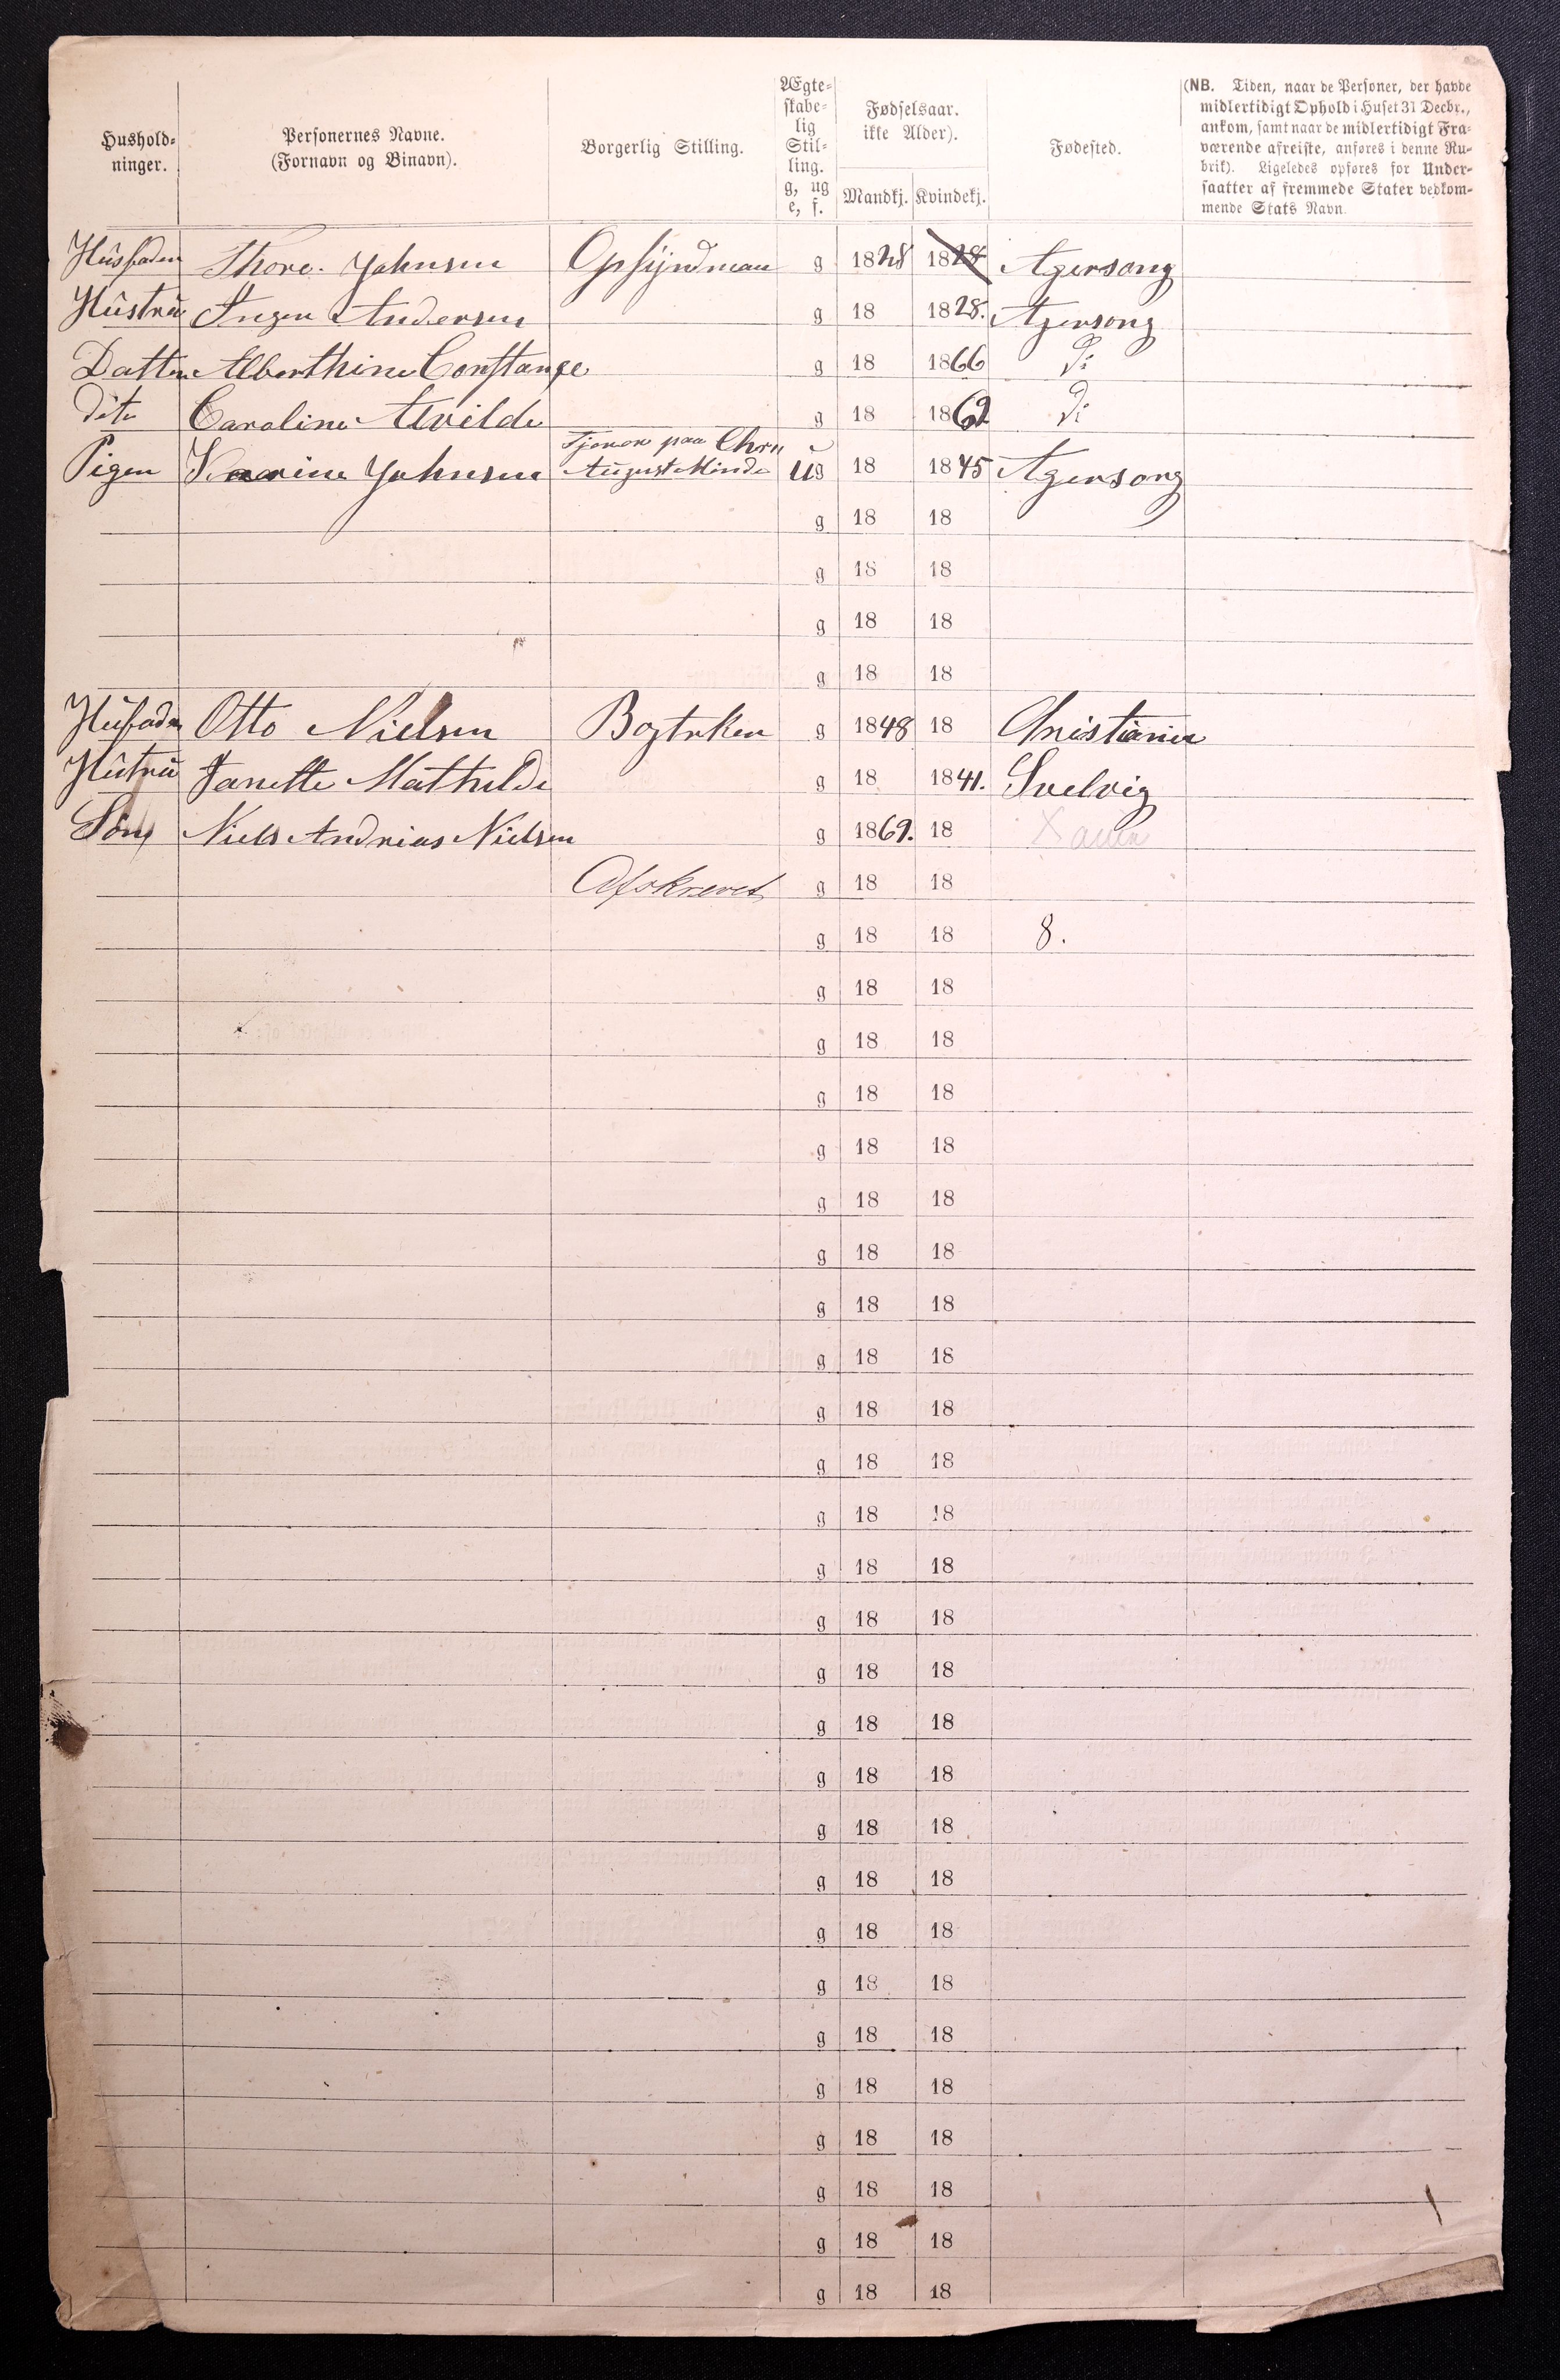 Hushold-
ninger.
Personernes Navne.
(Fornavn og Binavn).
Borgerlig Stilling.
Ægte-
skabe-
lig
Stil-
ling.
g, ug
e, f.
Fødselsaar.
ikke Alder).
Mandkj. Kvindekj.
Fødested.
(NB. Tiden, naar de Personer, der havde
midlertidigt Ophold i Huset 31 Decbr.,
ankom, samt naar de midlertidigt Fra-
værende afreiste, anføres i denne Ru-
brik). Ligeledes opføres for Under-
saatter af fremmede Stater vedkom-
mende Stats Navn.
Husfaden Thore. Johnsen Opsÿndman g 1828 1828 Agersong
Hustru Ingen Andersen g 18 1828. Agersong
Datten Alberthine Constanse g 18 1866 Do
dito Caroline Avilde g 18 1869 Do
Tjener paa Chrn
Pigen Johnsen August Minde ug 18 1845 Agersong
g 18 18
g 18 18
g 18 18
g 18 18
Husfaden Otto Nielsen Bogtrken g 1848 18 Christiania
Hustru Janette Mathilde g 18 1841. Svelvig
Søn Niels Andrias Nielsen g 1869. 18
Afskrevet g 18 18
g 18 18 8.
g 18 18
g 18 18
g 18 18
g 18 18
g 18 18
g 18 18
g 18 18
g 18 18
g 18 18
g 18 18
g 18 18
g 18 18
g 18 18
g 18 18
g 18 18
g 18 18
g 18 18
g 18 18
g 18 18
g 18 18
g 18 18
g 18 18
g 18 18
g 18 18
g 18 18
g 18 18